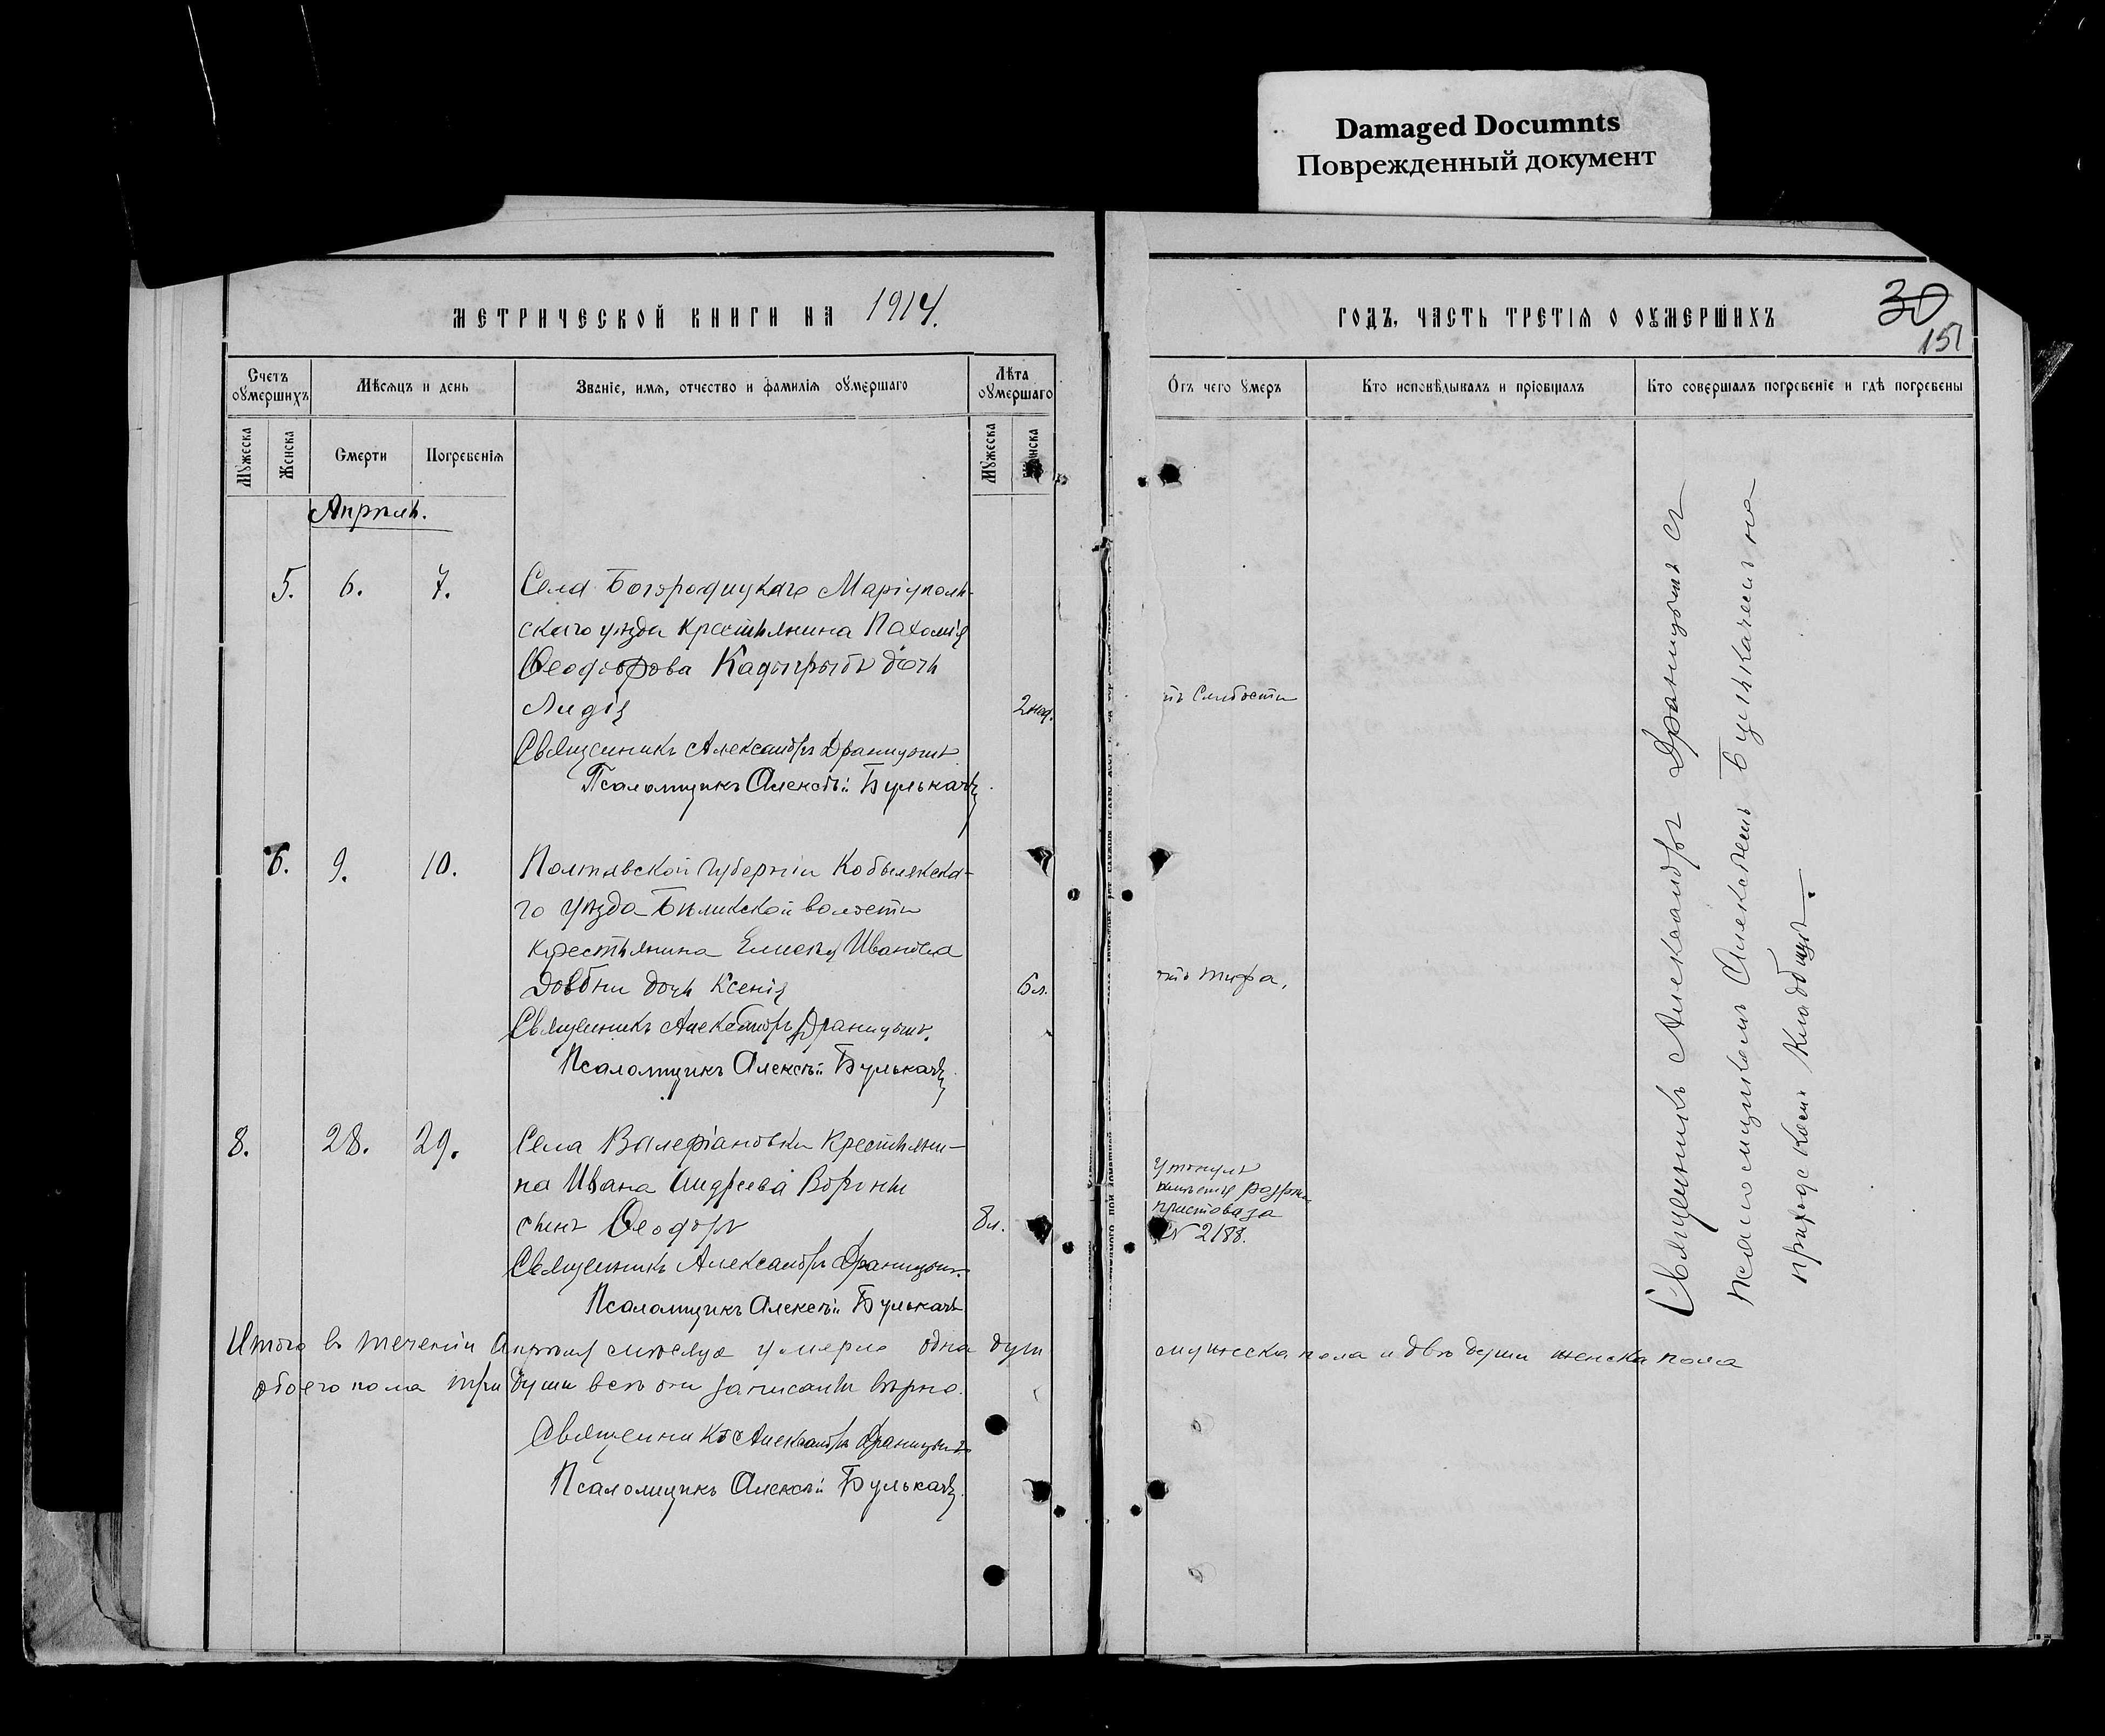 Damaged Documnts
Поврежденный документ
МЕТРИЧЕСКОЙ КНИГИ НА 1914.
ГОДЪ, ЧАСТЬ ТРЕТІЯ О ОУМЕРШИХЪ
30
151
Счетъ оумершихъ
Мѣсяцъ и день
Званіе, имя, отчество и фамилія оумершаго
Лѣта оумершаго
Отъ чего умеръ
Кто исповѣдывалъ и пріобщалъ
Кто совершалъ погребеніе и гдѣ погребены
Мужеска
Женска
Смерти
Погребенія
Мужеска
Женска
Апрѣль.
5. 6. 7. Села Богородицкаго Маріуполь-
скаго уѣзда крестьянина Пахомія
Ѳеодорова дочь
Лидія
2 нед.
отъ слабости
Священникъ Александръ
Псаломщикъ Алексѣй Булькачъ
6. 9. 10. Полтавской губерніи Кобелякска-
го уѣзда Бѣликской волости
крестьянина Елисея Иванова
Довбни дочь Ксенія
6 л.
отъ тифа.
Священникъ Александръ
Псаломщикъ Алексѣй Булькачъ
8. 28. 29. Села Валеріановки крестьяни-
на Ивана Андреева
сынъ Ѳеодоръ
8 л.
утонулъ
имѣется
пристава за
№ 2188.
Священникъ Александръ
Псаломщикъ Алексѣй Булькачъ
Священникъ Александръ съ
псаломщикомъ Алексѣемъ Булькачемъ на
приходскомъ кладбищѣ.
Итого въ теченіи Апрѣля мѣсяца умерло одна душа мужеска пола и двѣ души женска пола
обоего пола три души всѣ они записаны вѣрно.
Священникъ Александръ
Псаломщикъ Алексѣй Булькачъ